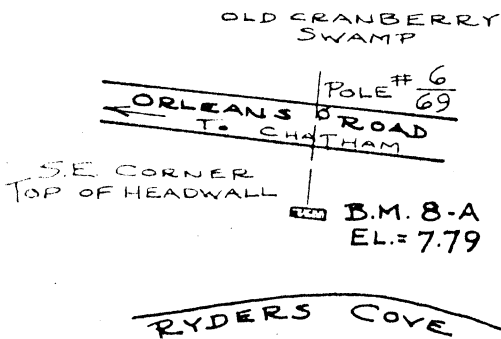 OLD CRANBERRY
SWAMP
POLE # 6/69
ORLEANS ROAD
TO CHATHAM
S.E. CORNER
TOP OF HEADWALL
B.M. 8-A
EL.= 7.79
RYDERS COVE